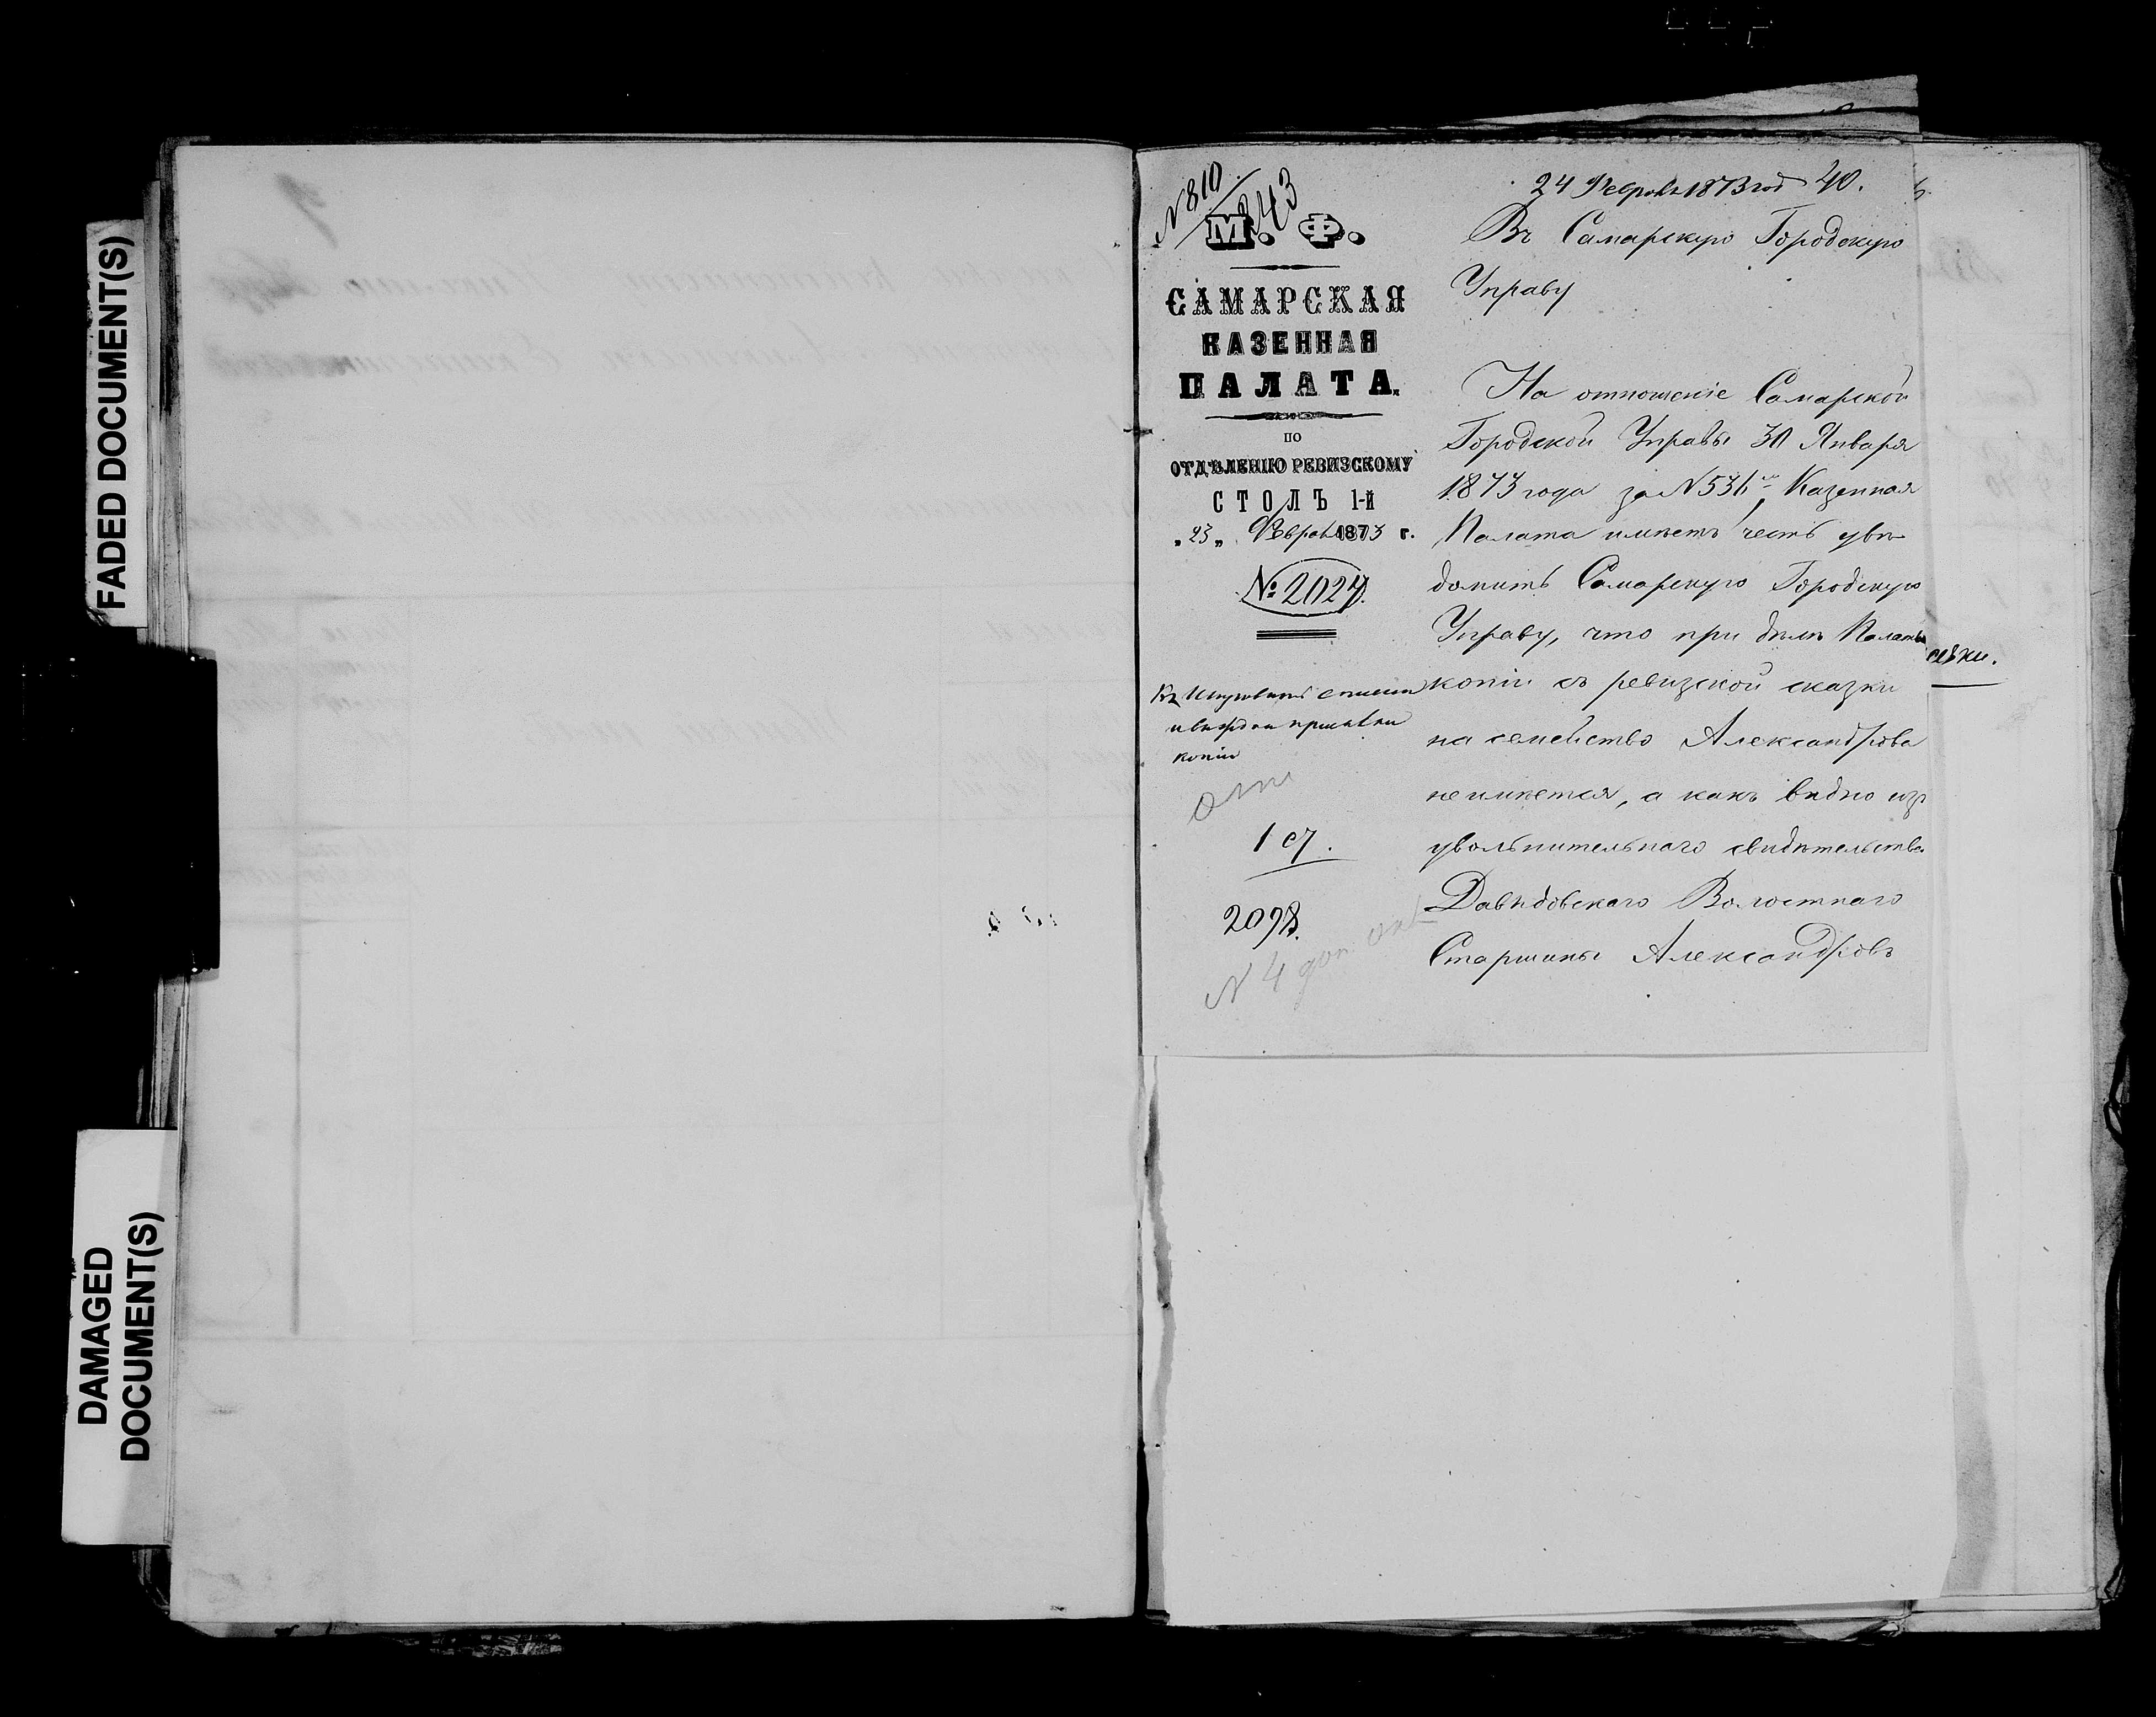 FADED DOCUMENT(S)
DAMAGED
DOCUMENT(S)
N 810
243
М. Ф.
САМАРСКАЯ
КАЗЕННАЯ
ПАЛАТА.
ПО
ОТДѢЛЕНІЮ РЕВИЗСКОМУ
СТОЛЪ 1-й
„23„ Февраля 1873 г.
№ 2024.
копіи
1 ст.
2098.
N 4
24 Февраля 1873 год 40.
Въ Самарскую Городскую
Управу
На отношеніе Самарской
Городской Управы 30 Января
1873 года за N 536, Казенная
Палата имѣетъ честь увѣ-
домить Самарскую Городскую
Управу, что при дѣлѣ Палаты
копіи съ ревизской сказки
на семейство Александрова
неимѣется, а какъ видно изъ
увольнительнаго свидѣтельства
Давыдовскаго Волостнаго
Старшины Александровъ